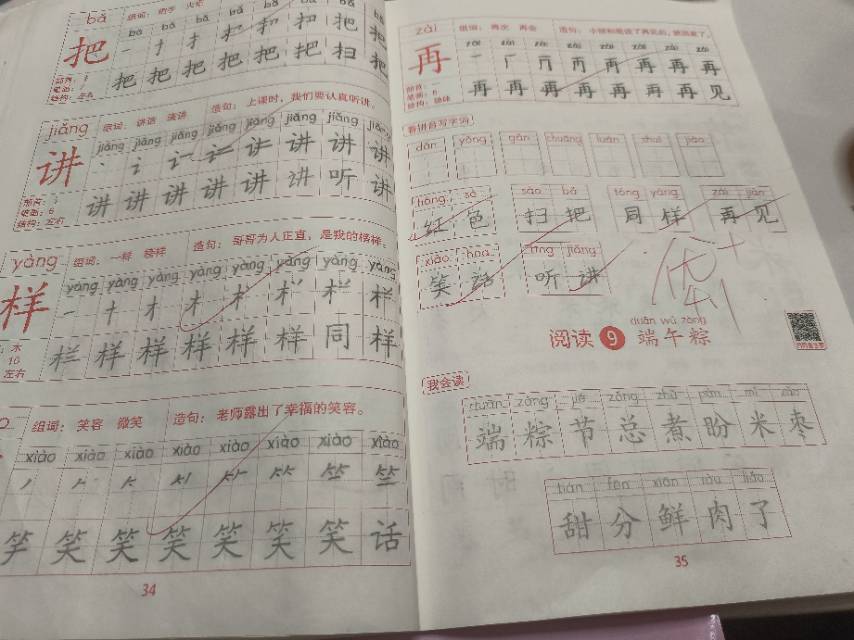 bǎ
把
组词：
bǎ bǎ bǎ bǎ bǎ bǎ
一 扌 扌 把
把 把 把 把 把 把 扫 把
jiǎng
讲
组词：讲话 演讲
造句：上课时，我们要认真听讲。
部首：讠
笔画：6
结构：左右
jiǎng jiǎng jiǎng jiǎng jiǎng jiǎng jiǎng
讲 讲 讲
讲 讲 讲 讲 讲 讲 听 讲
yàng
样
组词：一样 榜样
造句：哥哥为人正直，是我的榜样。
木
10
左右
yàng yàng yàng yàng yàng yàng yàng yàng
一 十 才 木
样 样 样 样 样 同 样
组词：笑容 微笑
造句：老师露出了幸福的笑容。
xiào xiào xiào xiào xiào xiào xiào xiào
笑 笑 笑 笑 笑 笑 话
34
zài
再
组词：再次 再会
部首：一
笔画：6
结构：独体
zài zài zài zài zài zài zài zài
一 厂 冂 再 再 再 再
再 再 再 再 再 再 再 见
看拼音写字词
dàn yǒng gǎn chuáng luàn zhuī
hóng sè
红 色
sào bǎ
扫 把
tóng yàng
同 样
zài jiàn
再 见
xiào huà
笑 话
tīng jiǎng
听 讲
优
duān wǔ zòng
阅读 9 端午粽
我会读
duān zòng jié zǒng zhǔ pàn mǐ zǎo
端 粽 节 总 煮 盼 米 枣
tián fēn xiān ròu liǎo
甜 分 鲜 肉 了
35